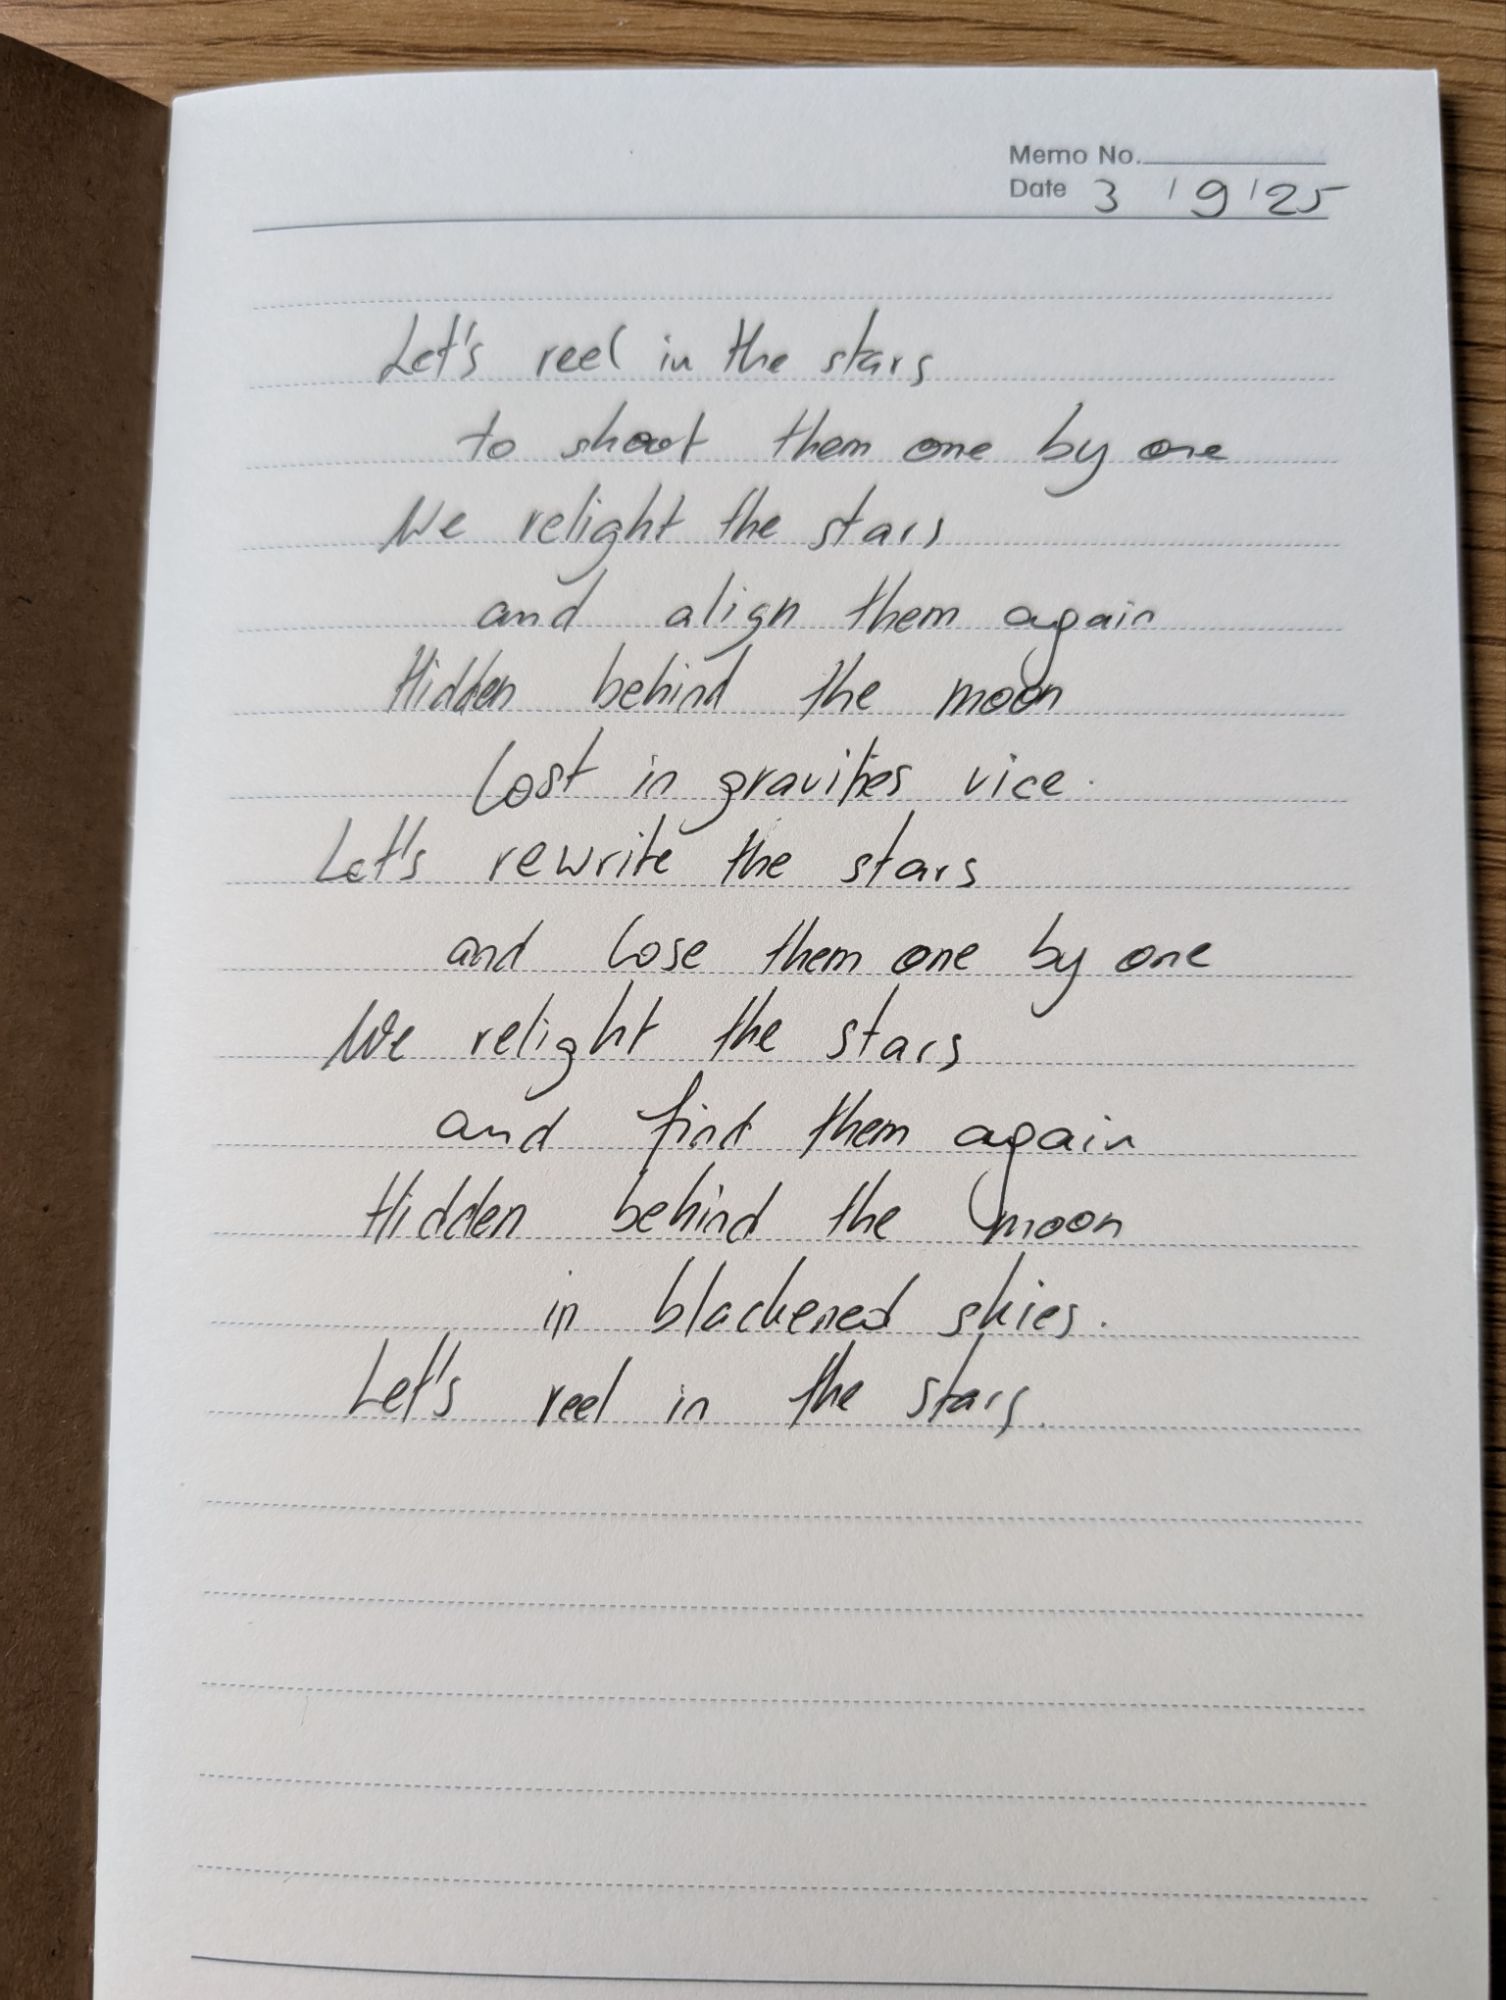 Memo No.
Date 3 / 9 / 25
Let's reel in the stars
to shoot them one by one
We relight the stars
and align them again
Hidden behind the moon
Lost in gravities vice.
Let's rewrite the stars
and lose them one by one
We relight the stars
and find them again
Hidden behind the moon
in blackened skies.
Let's reel in the stars.